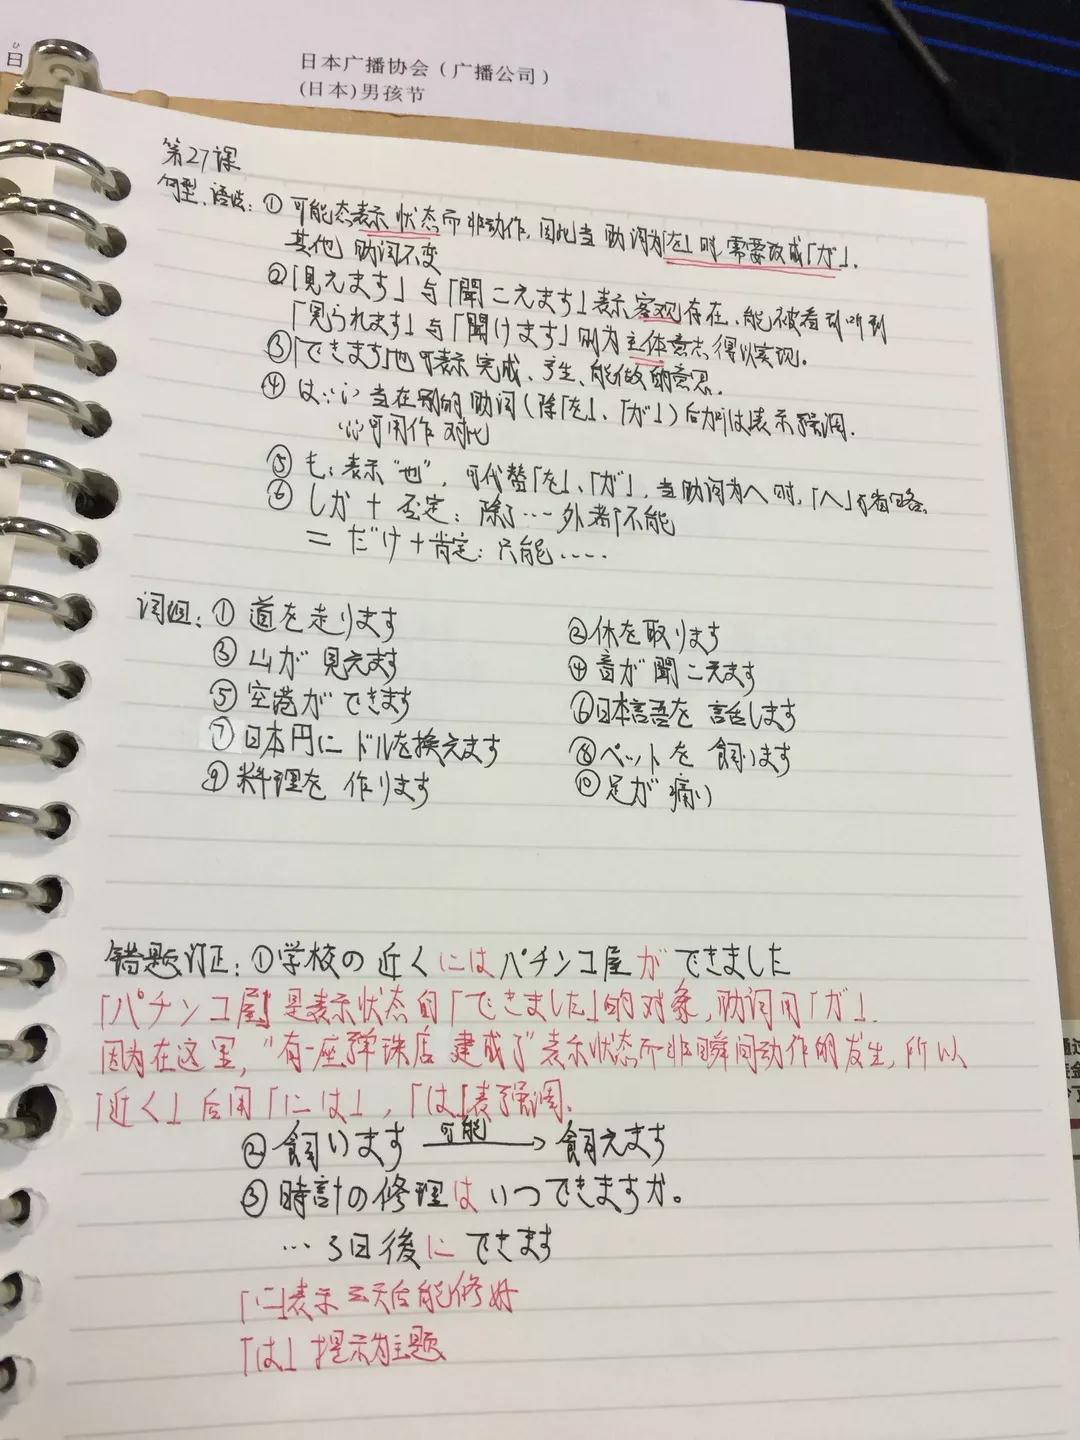 ひ
日
日本广播协会（广播公司）
(日本)男孩节
第27课
句型、语法：① 可能态表示状态而非动作，因此当助词为「を」时，需要改成「が」.
其他助词不变
②「見えます」与「聞こえます」表示客观存在、能被看到听到
「見られます」与「聞けます」则为主体意志得以实现。
③「できます」也可表示完成、产生、能做的意思.
④ は：i) 当在别的助词（除「を」、「が」）后加は表示强调.
ii) 可用作对比
⑤ も：表示“也”，可代替「を」、「が」，当助词为へ时，「へ」可省略.
⑥ しか + 否定：除了……外都不能
= だけ+肯定：只能……
词组：① 道を走ります ② 休を取ります
③ 山が見えます ④ 音が聞こえます
⑤ 空港ができます ⑥日本語を話します
⑦ 日本円にドルを換えます ⑧ペットを飼います
⑨ 料理を作ります ⑩足が痛い
错题订正：①学校の近くにはパチンコ屋ができました
「パチンコ屋」是表示状态的「できました」的对象，助词用「が」.
因为在这里，“有一座弹珠店建成了”表示状态而非瞬间动作的发生，所以
「近く」后用「には」，「は」表强调.
② 飼います 可能→ 飼えます
③ 時計の修理はいつできますか。
… 3日後にできます
「に」表示三天后能修好
「は」提示为主题
通过